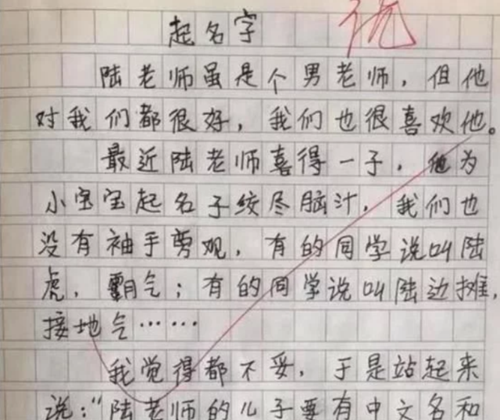 起名字
陆老师虽是个男老师，但他
对我们都很好，我们也很喜欢他。
最近陆老师喜得一子，他为
小宝宝起名子绞尽脑汁，我们也
没有袖手旁观，有的同学说叫陆
虎，霸气；有的同学说叫陆边摊，
接地气……
我觉得都不妥，于是站起来
说：“陆老师的儿子要有中文名和